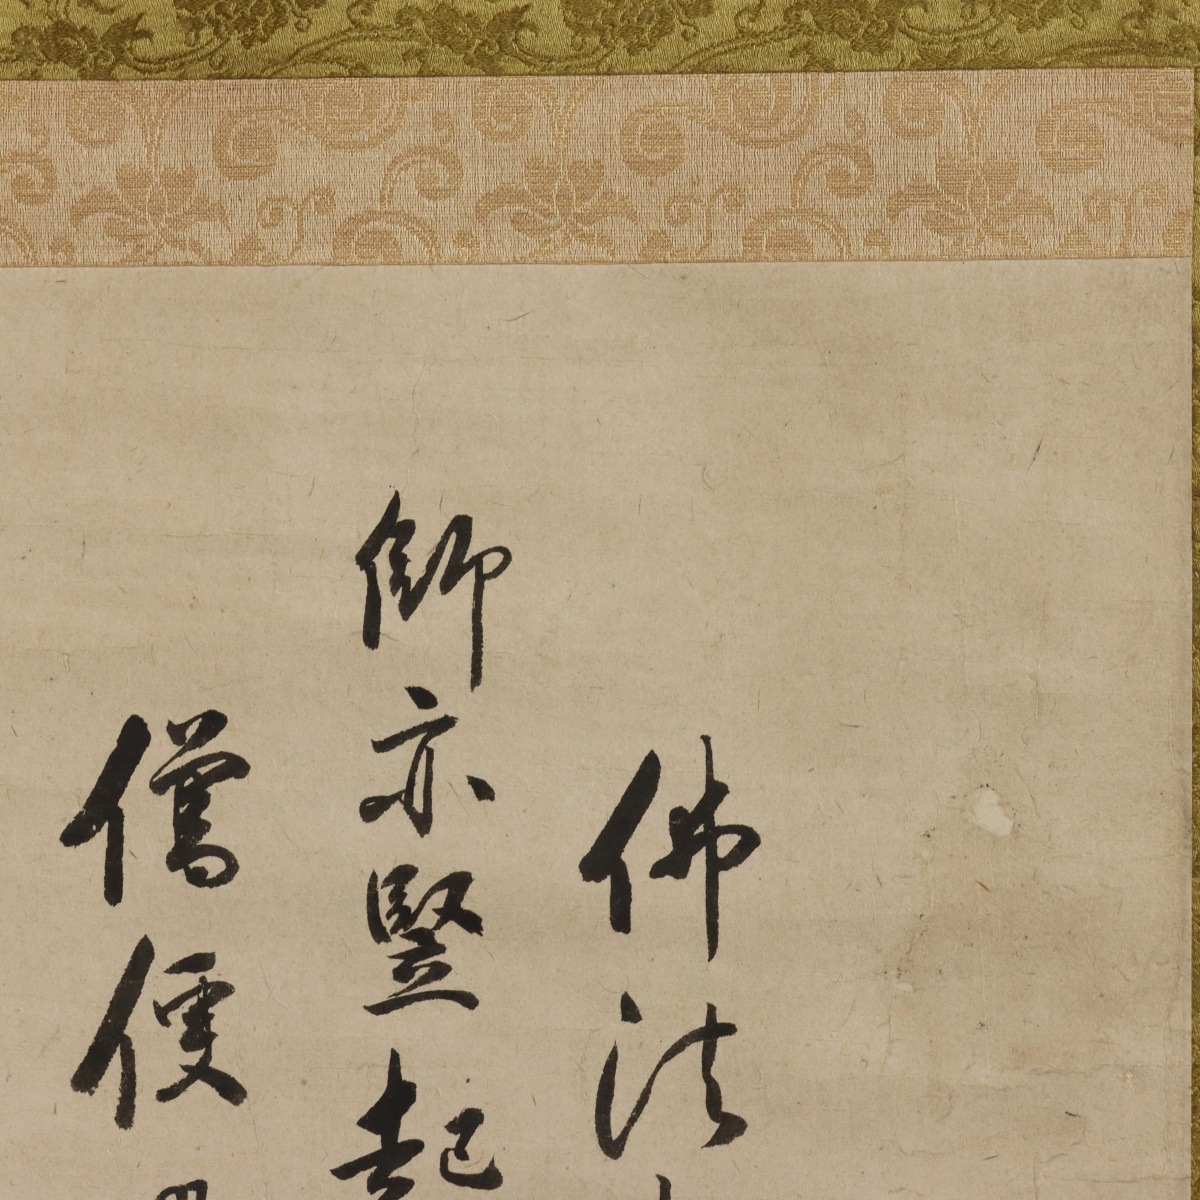 佛法
師亦竪起
僧便